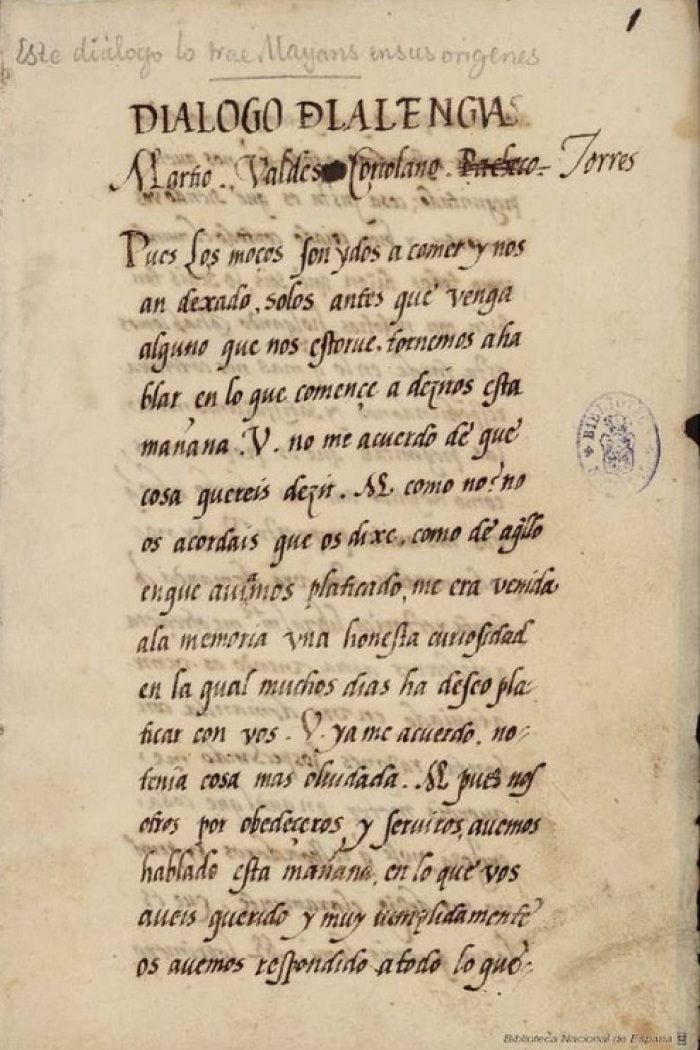 1
Este diálogo lo trae Mayans en sus origenes
DIALOGO DLALENGVA
Martio. Valdes Coriolano. Pacheco. Torres
Pues Los moços son ydos a comer y nos
an dexado, solos antes que venga
alguno que nos estorue. tornemos a ha
blar en lo que comence a deziros esta
mañana. V. no me acuerdo de que
cosa quereis dezir. M. como no? no
os acordais que os dixe, como de aq̃llo
enque auiamos platicado, me era venida
ala memoria vna honesta curiosidad
en la qual muchos dias ha deseo pla-
ticar con vos. V. ya me acuerdo. no-
tenia cosa mas oluidada. M. pues nos
otros por obedeçeros, y seruiros, auemos
hablado esta mañana, en lo que vos
aueis querido y muy cumplidamente
os auemos respondido atodo lo que-
BIBLIOTECA
Biblioteca Nacional de España